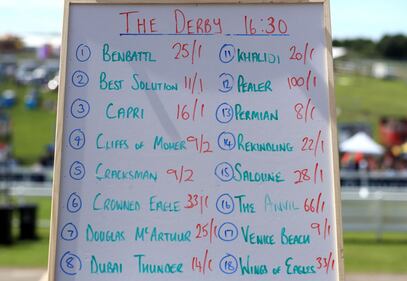 THE DERBY 16:30
1 BENBATL 25/1
2 BEST SOLUTION 11/1
3 CAPRI 16/1
4 CLIFFS OF MOHER 9/2
5 CRACKSMAN 9/2
6 CROWNED EAGLE 33/1
7 DOUGLAS MCARTHUR 25/1
8 DUBAI THUNDER 14/1
11 KHALIDI 20/1
12 PEALER 100/1
13 PERMIAN 8/1
14 REKINDLING 22/1
15 SALOUNE 28/1
16 THE ANVIL 66/1
17 VENICE BEACH 9/1
18 WINGS OF EAGLES 33/1